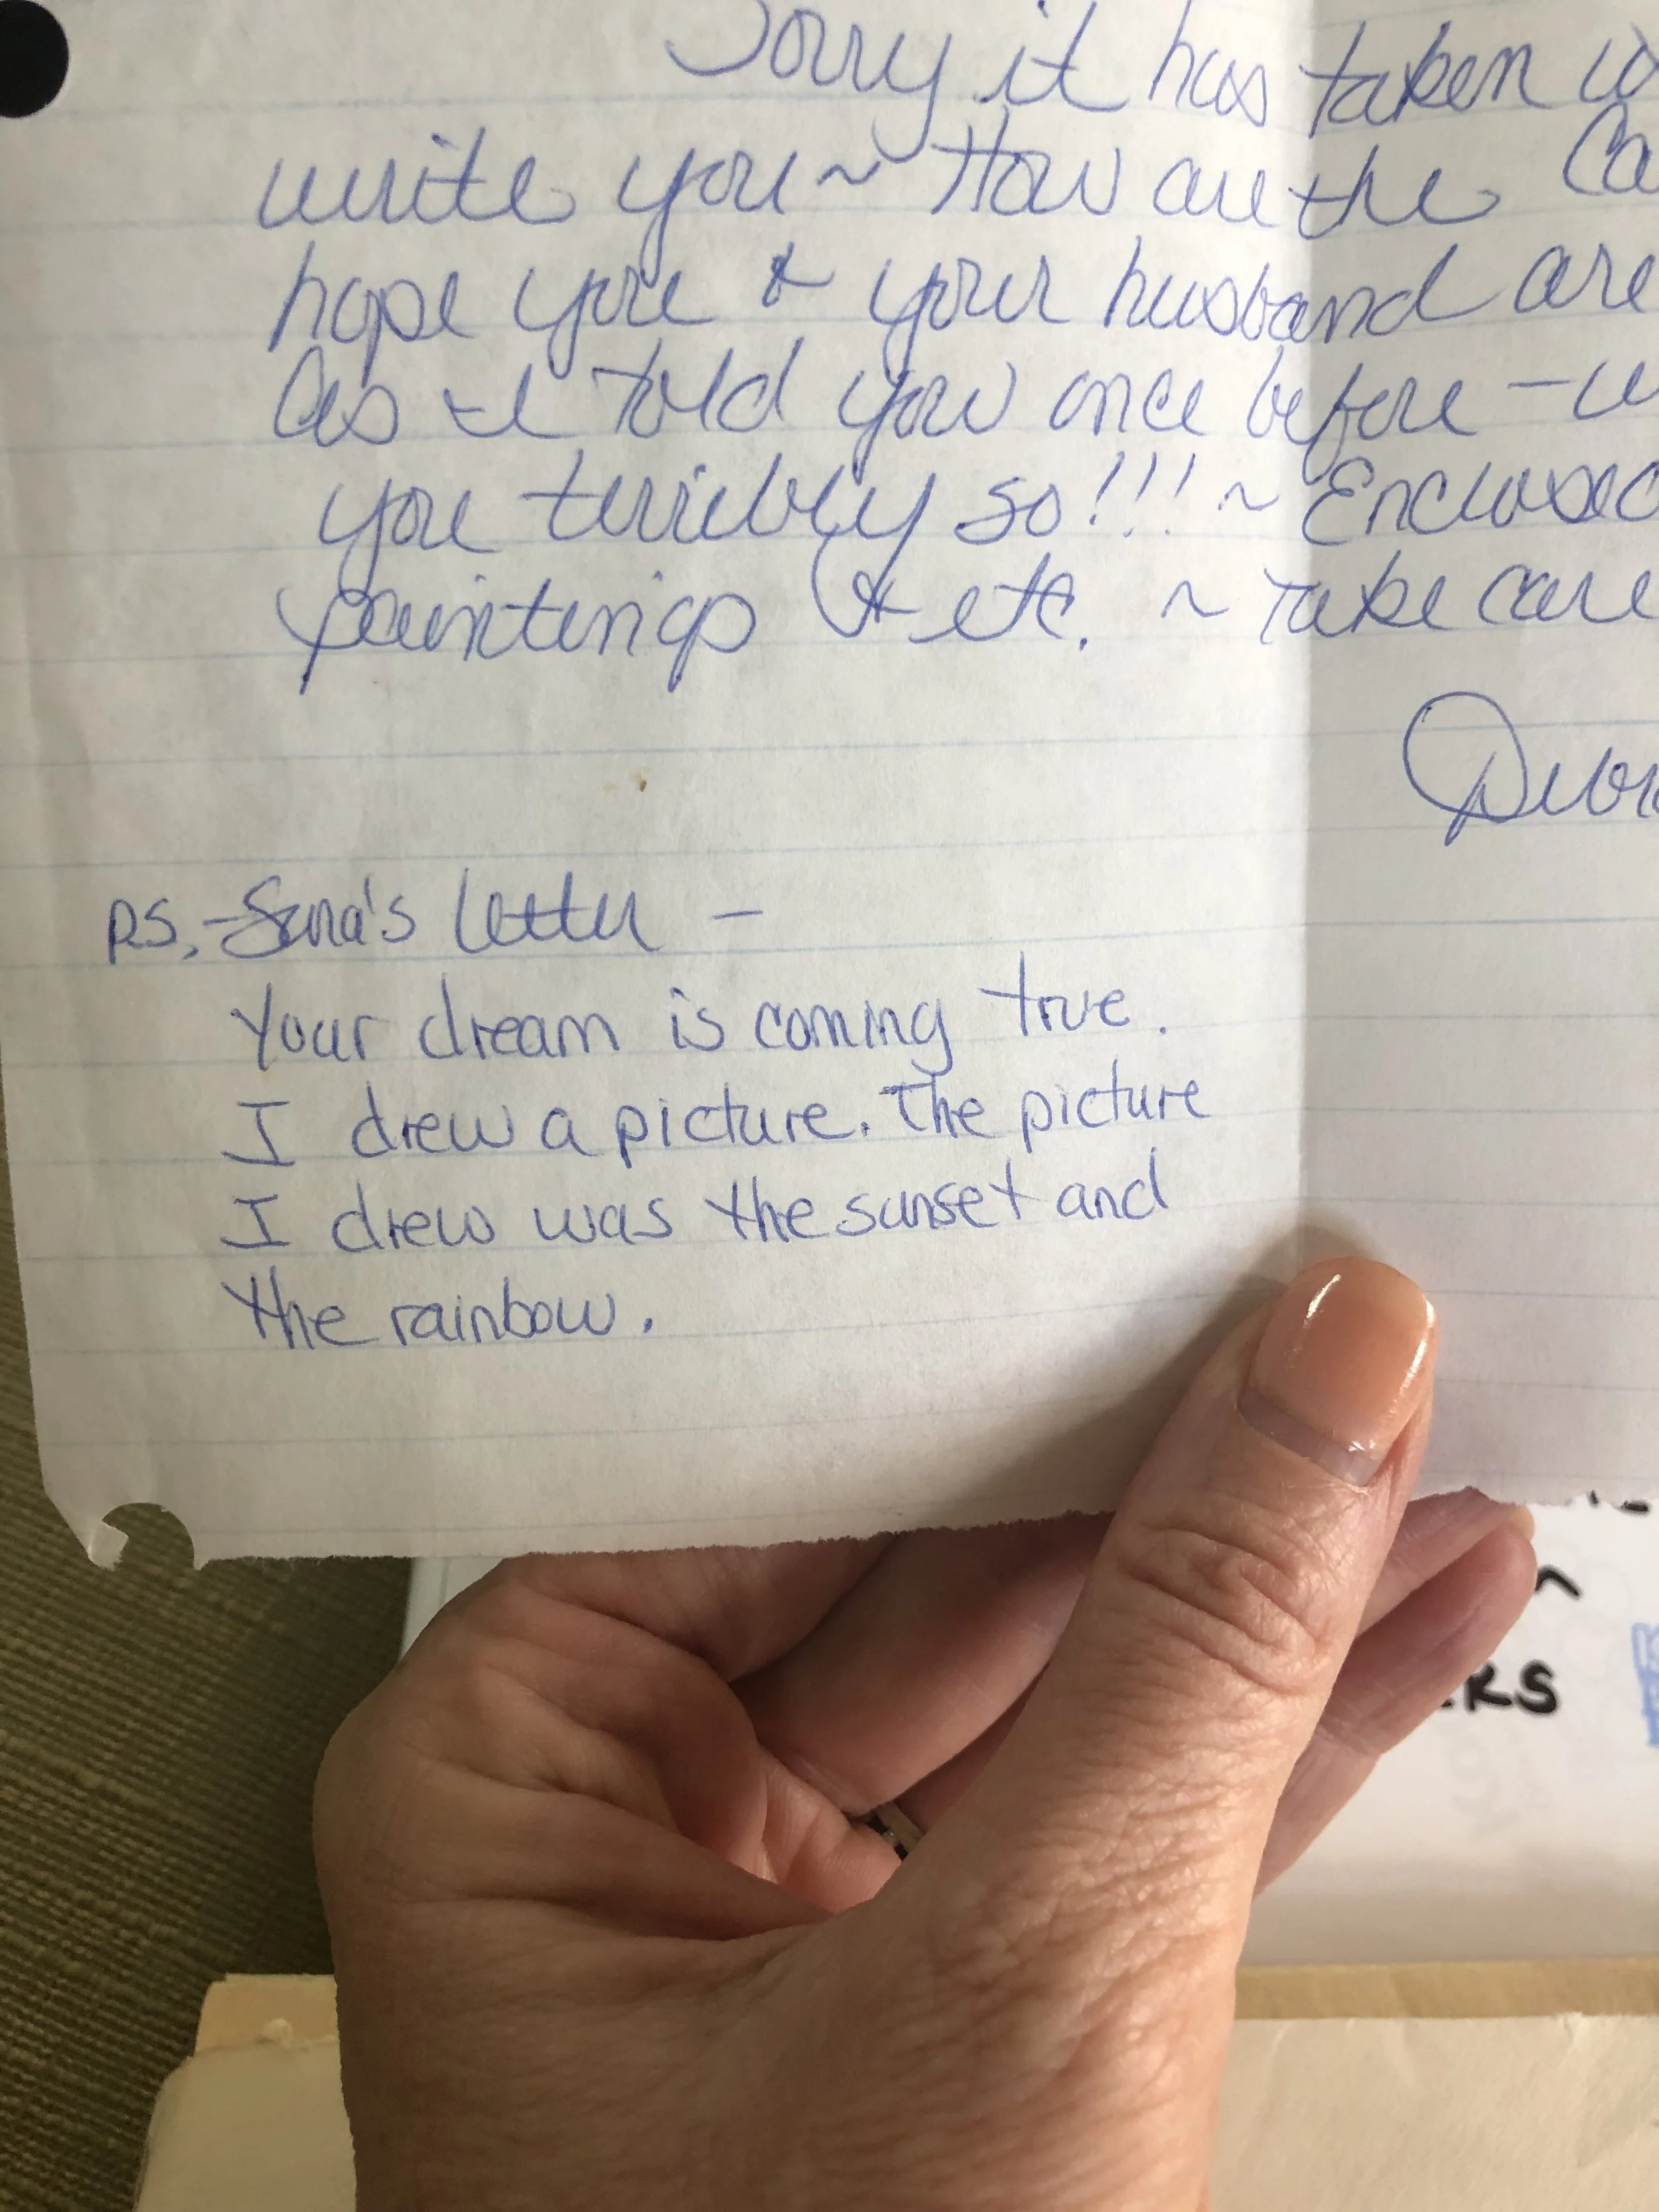 Sorry it has taken
write you ~ How are the
hope you & your husband are
As I told you once before -
you terribly so!!! ~ Enclosed
paintings & etc. ~ Take care
P.S. - Sena's letter -
Your dream is coming true.
I drew a picture. The picture
I drew was the sunset and
the rainbow.